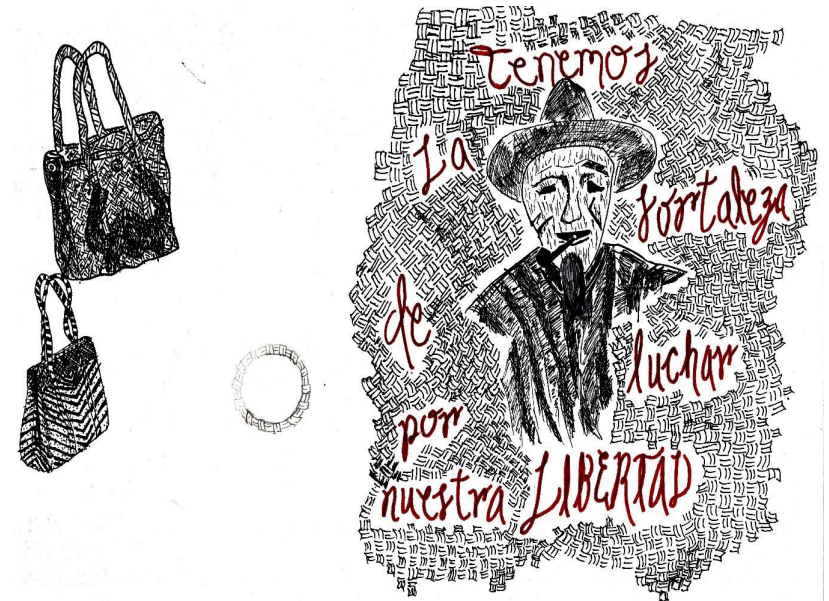 Tenemos
La fortaleza
de luchar
por
nuestra LIBERTAD